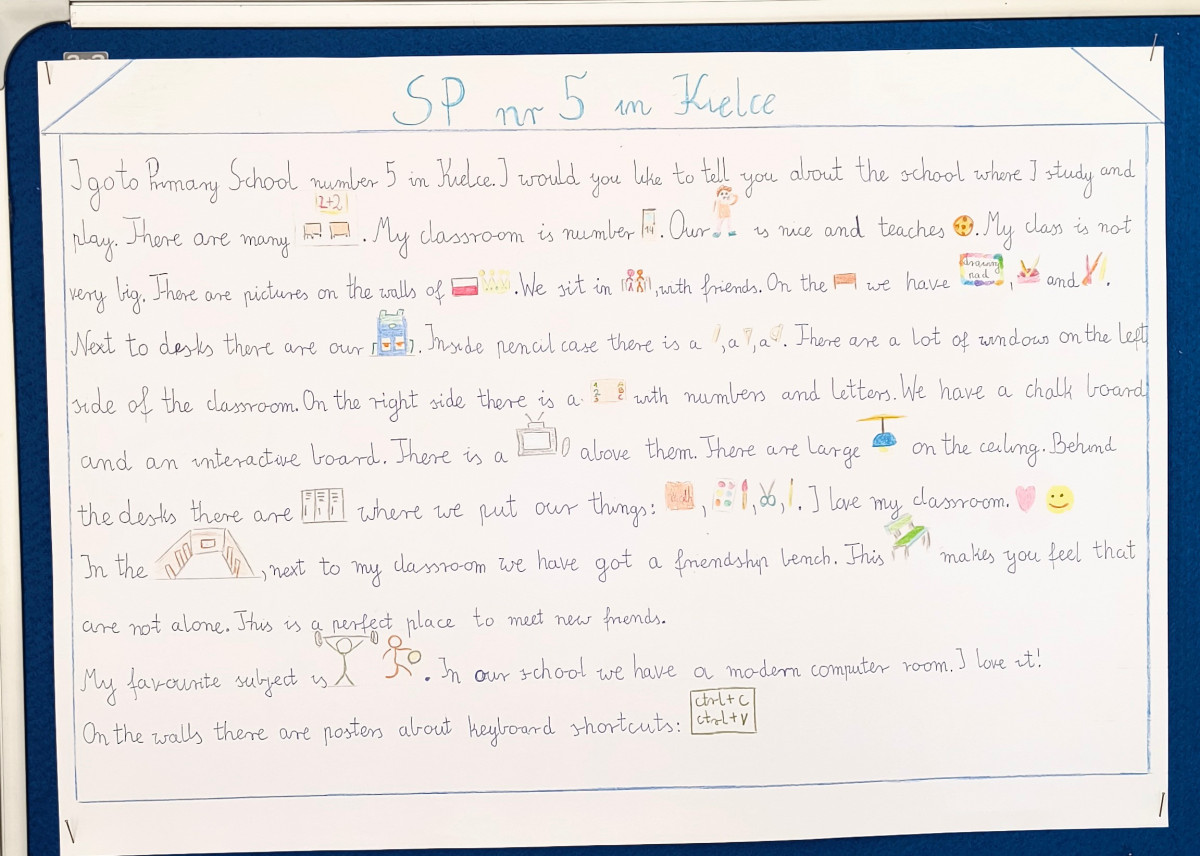 SP nr 5 in Kielce
I go to Primary School number 5 in Kielce. I would you like to tell you about the school where I study and
2+2
play. There are many . My classroom is number 14. Our is nice and teaches . My class is not
very big. There are pictures on the walls of . We sit in , with friends. On the we have drawing pad, and .
Next to desks there are our . Inside pencil case there is a , a , a . There are a lot of windows on the left
side of the classroom. On the right side there is a 1 2 3 A B C with numbers and letters. We have a chalk board
and an interactive board. There is a above them. There are large on the ceiling. Behind
the desks there are where we put our things: , , , . I love my classroom.
In the , next to my classroom we have got a friendship bench. This makes you feel that
are not alone. This is a perfect place to meet new friends.
My favourite subject is . In our school we have a modern computer room. I love it!
On the walls there are posters about keyboard shortcuts: ctrl+c
ctrl+v